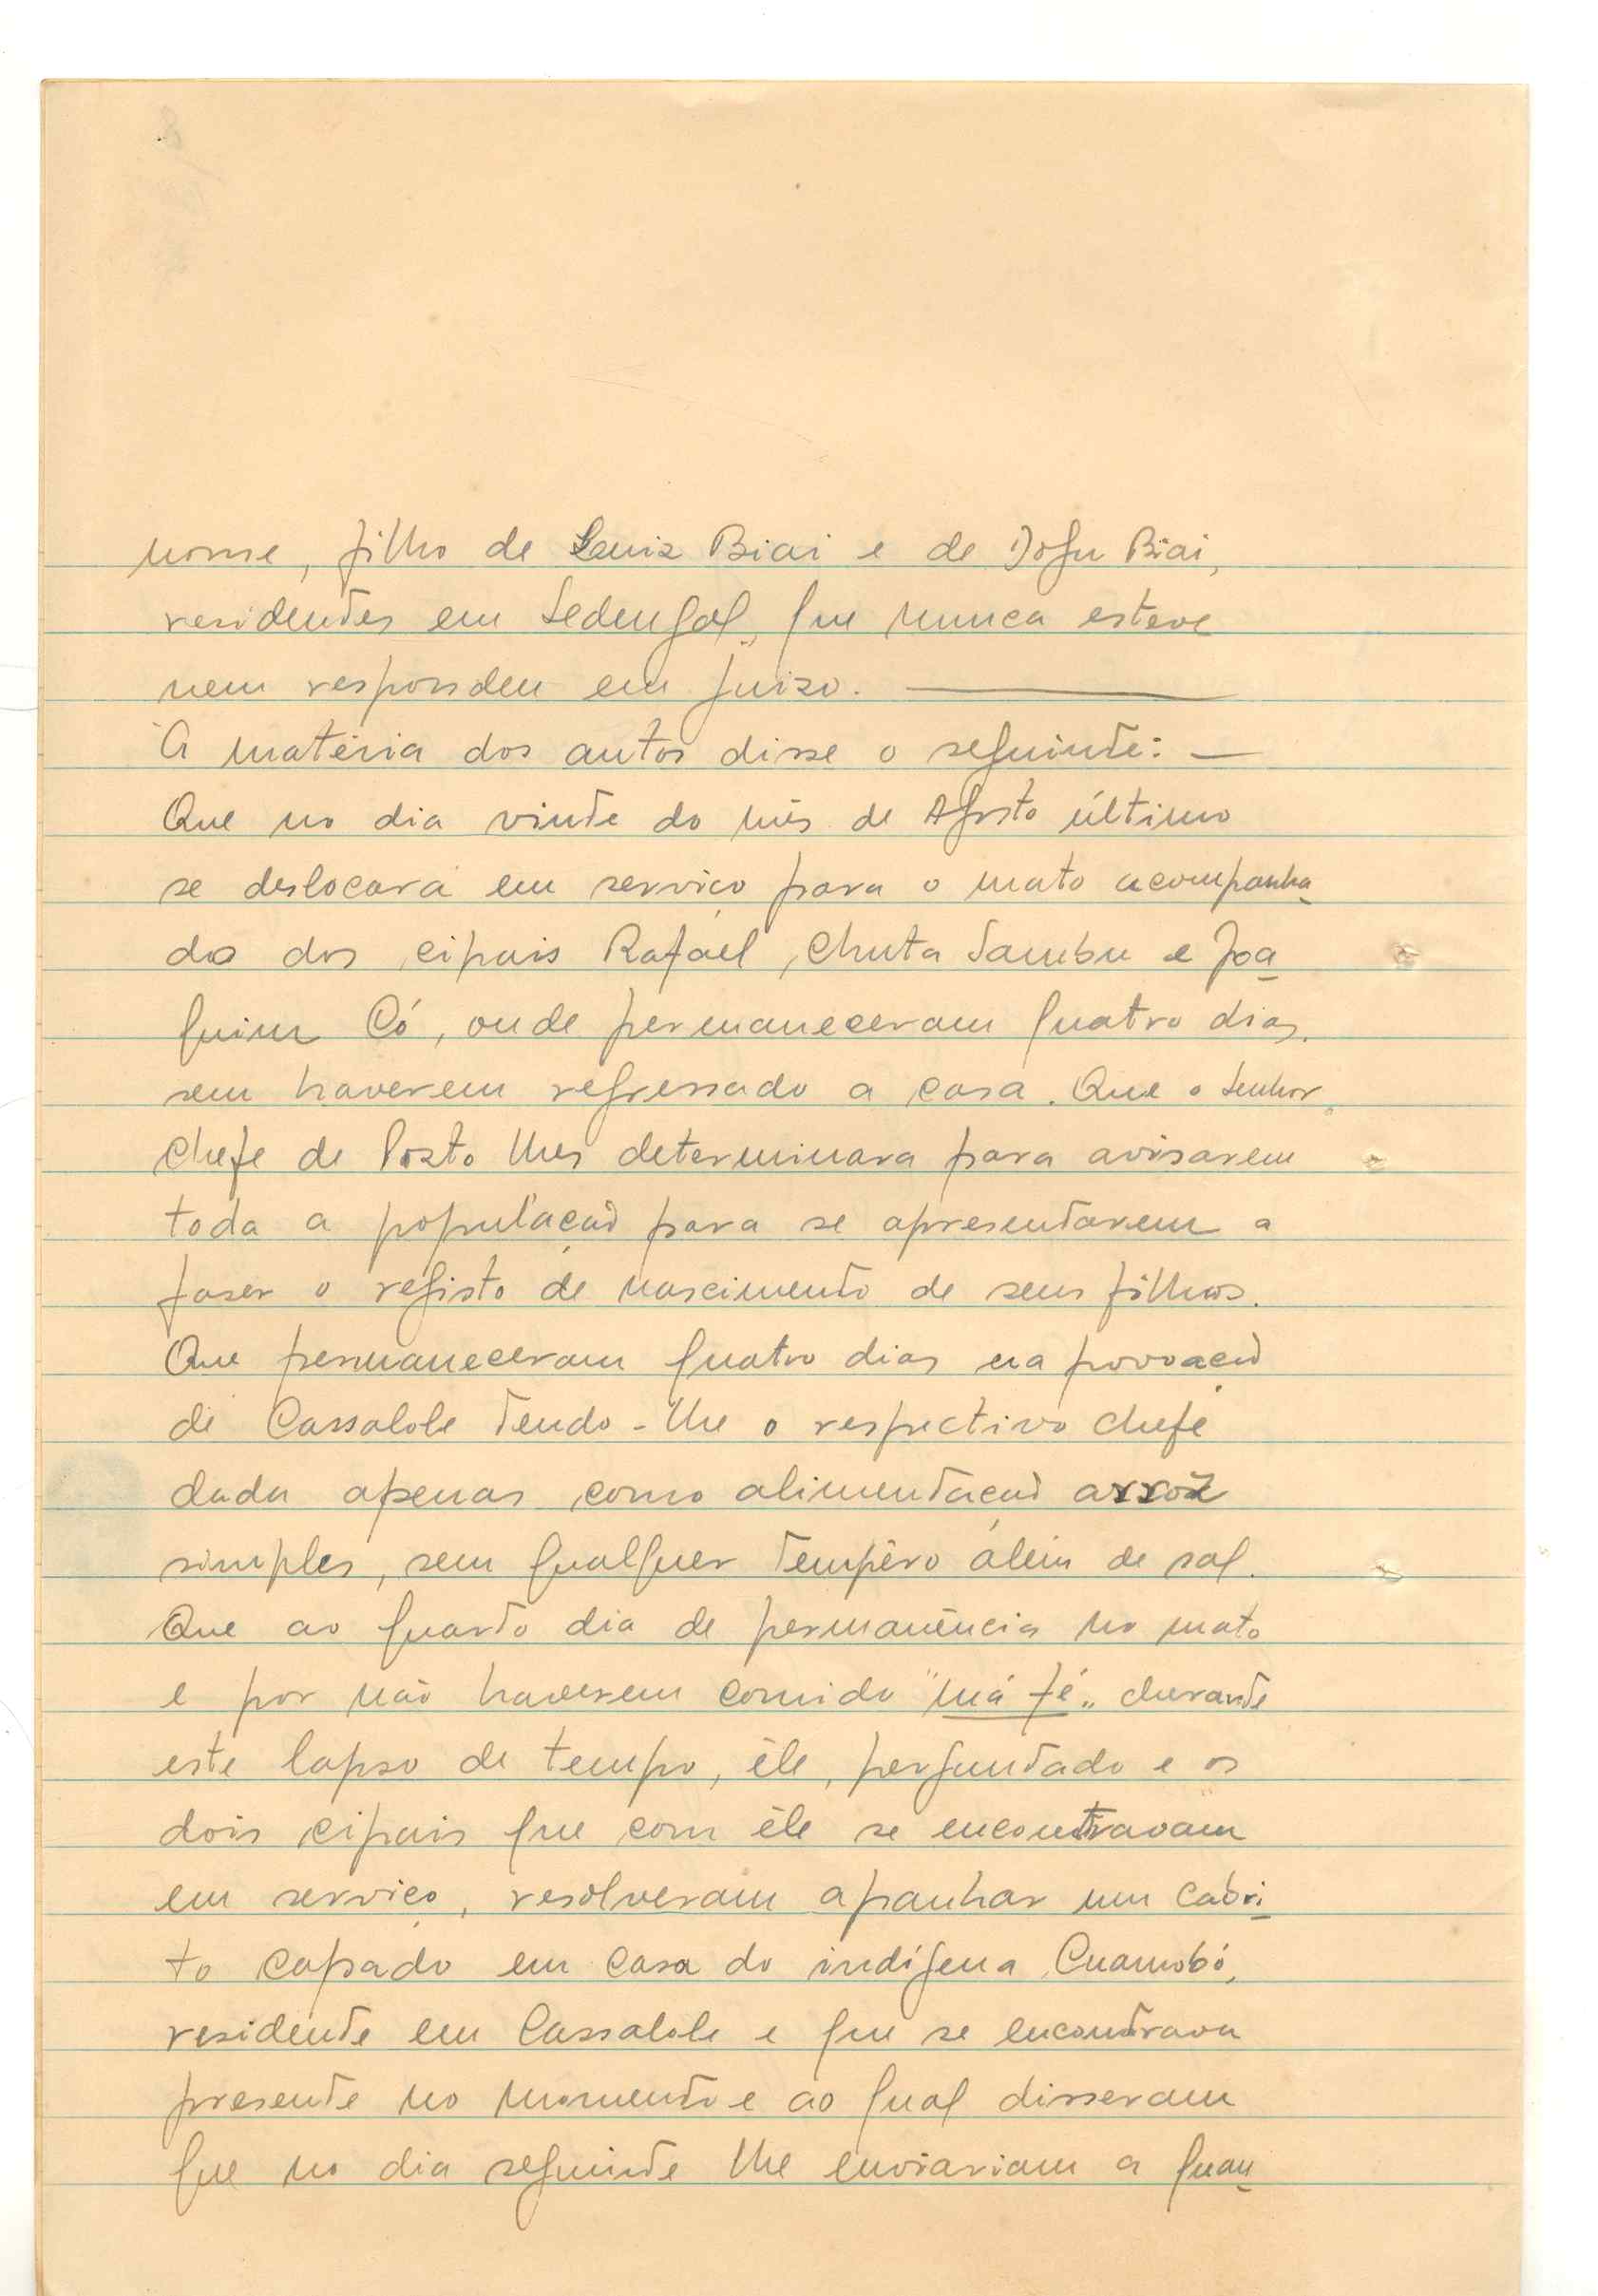 nome, filho de Luiz Biai e de Dofu Biai,
residentes em Sedengal, que nunca esteve
nem respondeu em juizo. ———
Á matéria dos autos disse o seguinte: —
Que no dia vinte do mês de Agosto último
se deslocára em serviço para o mato acompanha-
do dos cipais Rafael, Chuta Sambu e Joa-
quim Có, onde permaneceram quatro dias.
sem haverem regressado a casa. Que o Senhor
Chefe de Posto lhes determinara para avisarem
toda a população para se apresentarem a
faser o registo de nascimento de seus filhos.
Que permaneceram quatro dias na povoação
de Cassalole tendo-lhe o respectivo chefe
dada apenas como alimentação arroz
simples, sem qualquer tempêro além de sal.
Que ao quarto dia de permanência no mato
e por não haverem comido "má fé" durante
este lapso de tempo, êle, perguntado e os
dois cipais que com êle se encontravam
em serviço, resolveram apanhar um cabri-
to capado em casa do indígena Cuambó,
residente em Cassalole e que se encontrava
presente no momento e ao qual disseram
que no dia seguinte lhe enviariam a quan-